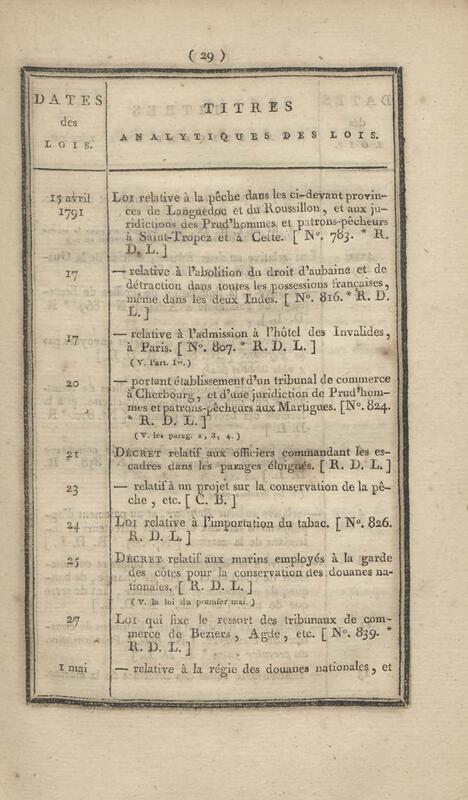 ( 29 )
DATES
des
LOIS.
TITRES
ANALYTIQUES DES LOIS.
15 avril
1791
LOI relative à la pêche dans les ci-devant provin-
ces de Languedoc et du Roussillon, et aux ju-
ridictions des Prud'hommes et patrons-pêcheurs
à Saint-Tropez et à Cette. [ N°. 783. * R.
D. L. ]
17 — relative à l'abolition du droit d'aubaine et de
détraction dans toutes les possessions françaises,
même dans les deux Indes. [ N°. 816. * R. D.
L. ]
17 — relative à l'admission à l'hôtel des Invalides,
à Paris. [ N°. 807. * R. D. L. ]
( V. l'art. Ier. )
20 — portant établissement d'un tribunal de commerce
à Cherbourg, et d'une juridiction de Prud'hom-
mes et patrons-pêcheurs aux Martigues. [ N°. 824.
* R. D. L. ]
( V. les parag. 2, 3, 4. )
21 DÉCRET relatif aux officiers commandant les es-
cadres dans les parages éloignés. [ R. D. L. ]
23 — relatif à un projet sur la conservation de la pê-
che, etc. [ C. B. ]
24 LOI relative à l'importation du tabac. [ N°. 826.
R. D. L. ]
25 DÉCRET relatif aux marins employés à la garde
des côtes pour la conservation des douanes na-
tionales. [ R. D. L. ]
( V. la loi du premier mai. )
27 LOI qui fixe le ressort des tribunaux de com-
merce de Beziers, Agde, etc. [ N°. 839. *
R. D. L. ]
1 mai — relative à la régie des douanes nationales, et